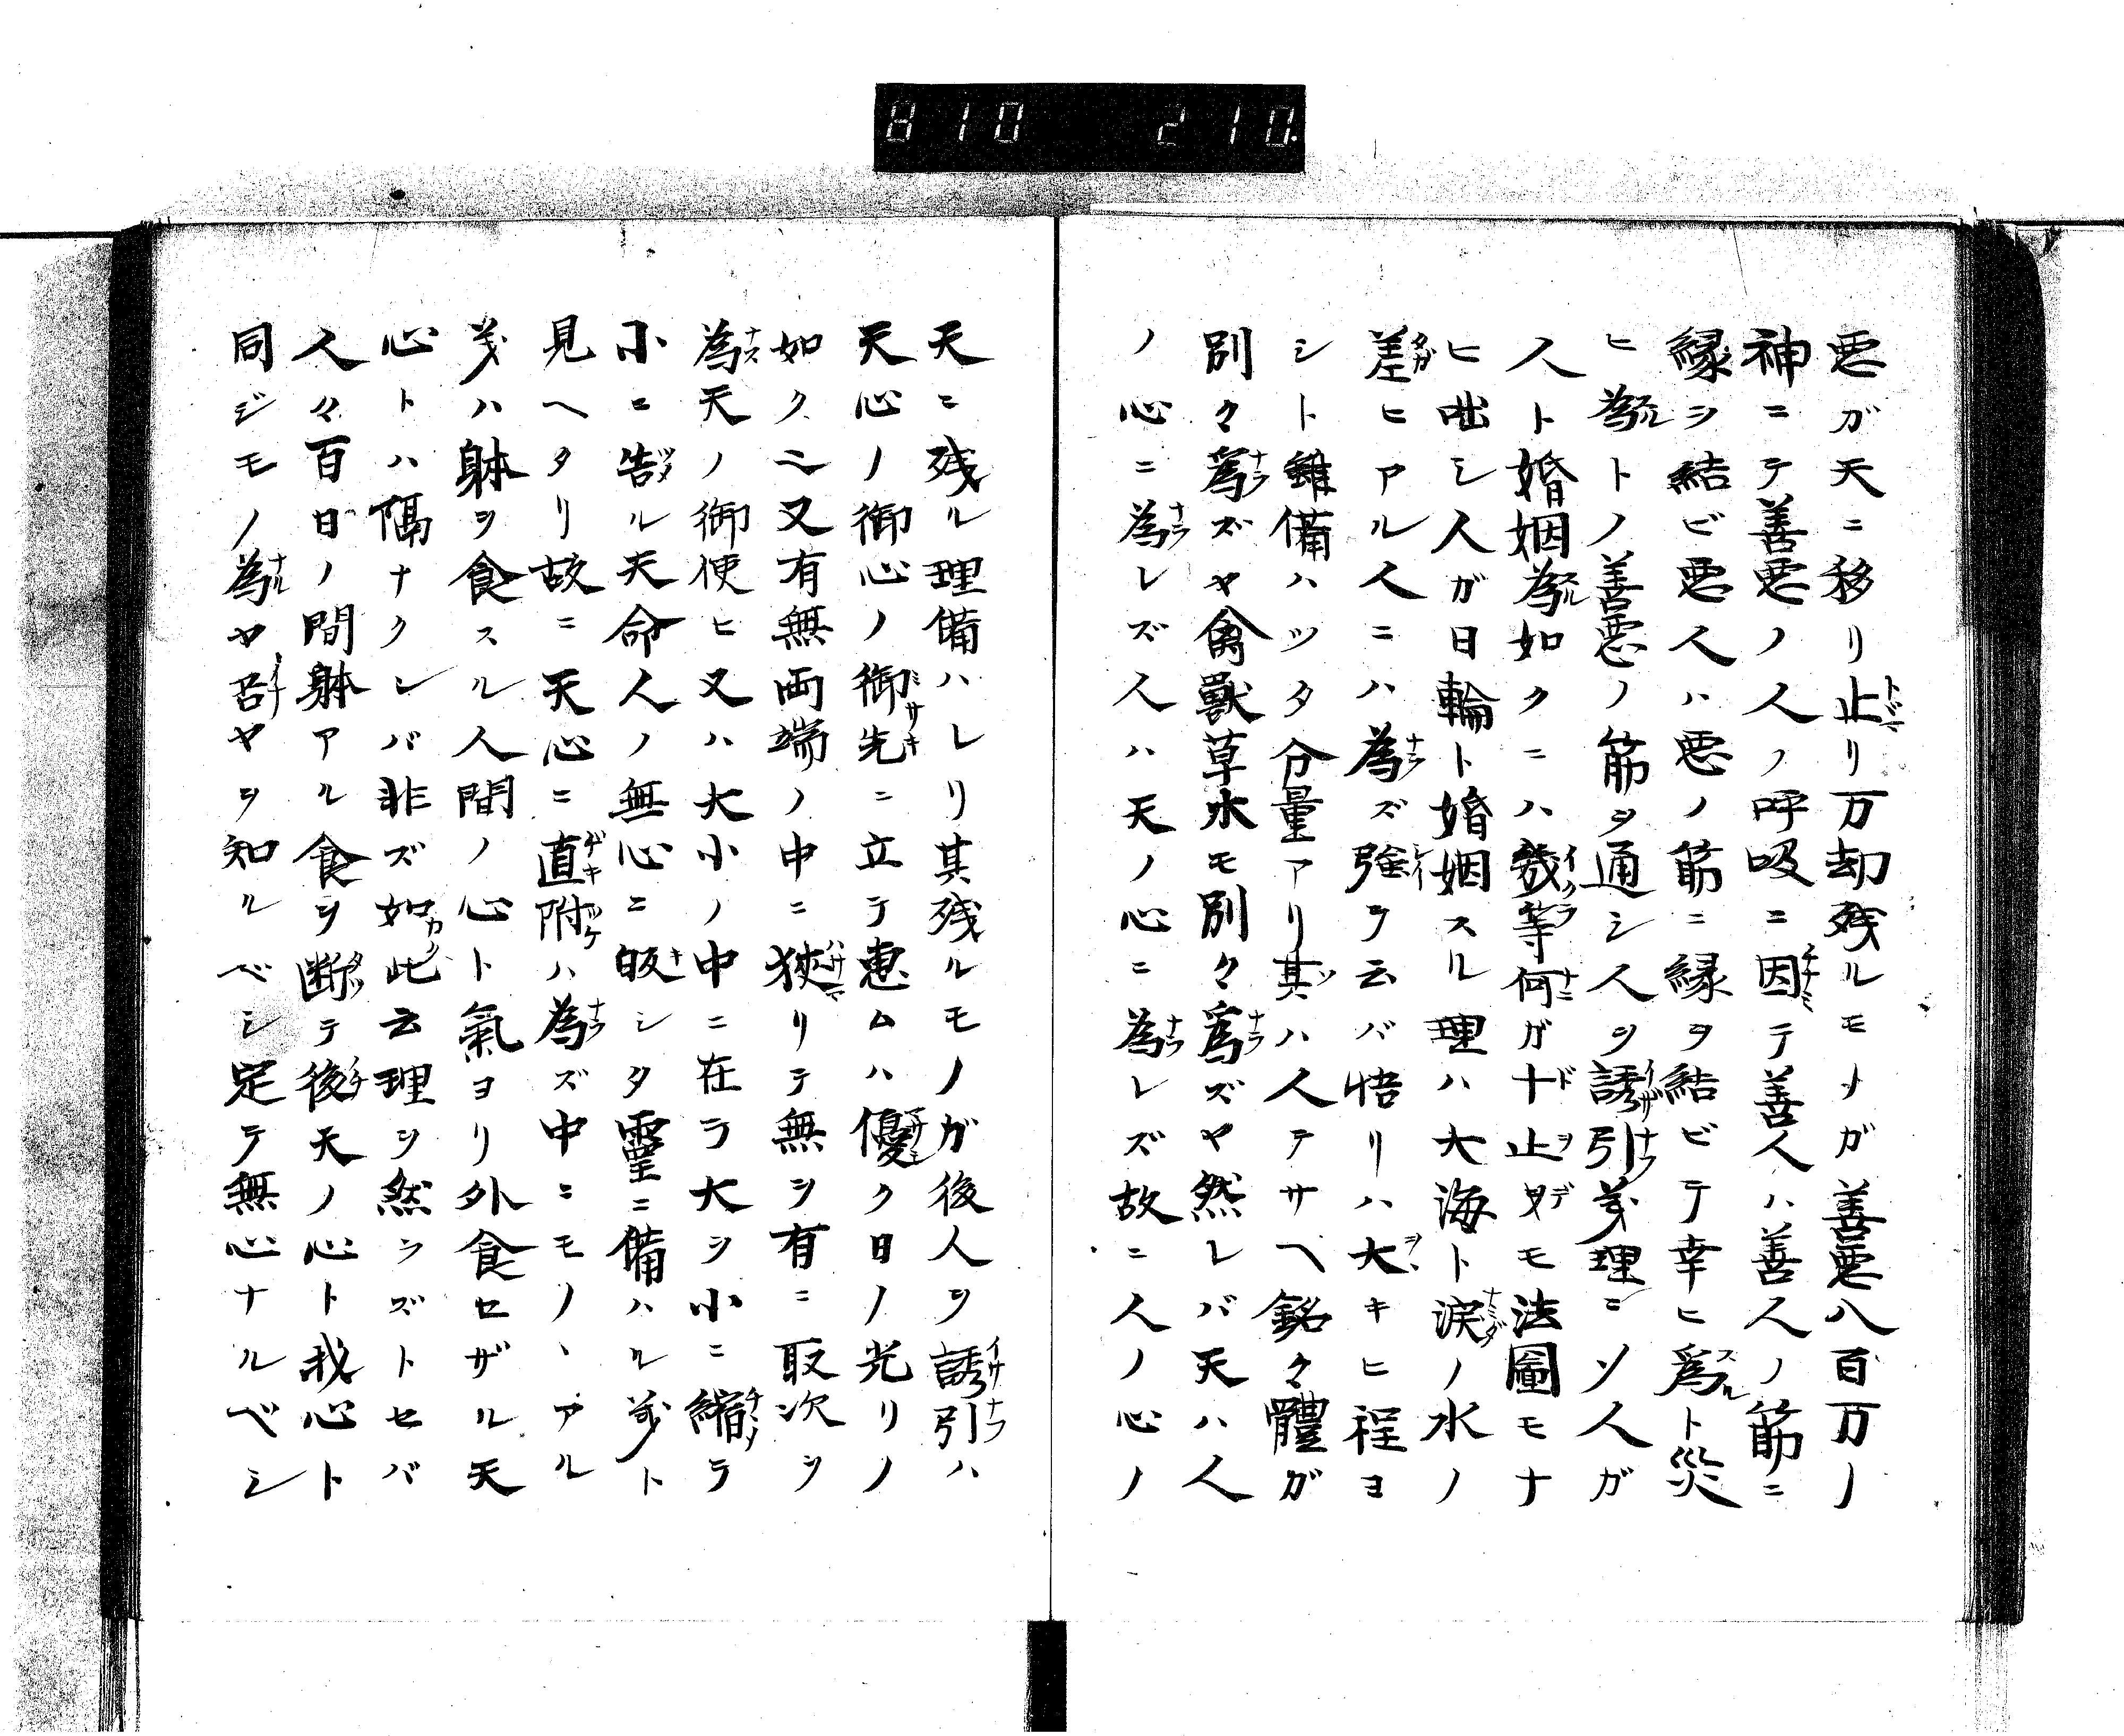 810 210
悪ガ天ニ移リ止リ万却残ルモノガ善悪八百万ノ
神ニテ善悪ノ人ノ呼吸ニ因テ善人ハ善人ノ筋ニ
縁ヲ結ビ悪人ハ悪ノ筋ニ縁ヲ結ビテ幸ヒ爲ト災
ヒ為トノ善悪ノ筋ヲ通シ人ヲ誘引夛理ニソ人ガ
人ト婚姻為如クニハ幾等何ガ十止タモ法圖モナ
ヒ咄シ人ガ日輪ト婚姻スル理ハ大海ト涙ノ水ノ
差ヒアル人ニハ為ズ強テ云バ悟リハ大キヒ程ヨ
シト雖備ハツタ分量アリ其ハ人テサヘ銘々體ガ
別々爲ズヤ禽獸草水モ別々爲ズヤ然レバ天ハ人
ノ心ニ為レズ人ハ天ノ心ニ為レズ故ニ人ノ心ノ
天ニ残ル理備ハレリ其残ルモノガ後人ヲ誘引ハ
天心ノ御心ノ御先ニ立テ恵ムハ優ク日ノ光リノ
如クニ又有無両端ノ中ニ狹リテ無ヲ有ニ取次ヲ
為天ノ御使ヒ又ハ大小ノ中ニ在ラ大ヲ小ニ縮テ
小ニ告ル天命人ノ無心ニ皈シタ靈ニ備ハル夛ト
見ヘタリ故ニ天心ニ直附ハ為ズ中ニモノヽアル
夛ハ躰ヲ食スル人間ノ心ト氣ヨリ外食セザル天
心トハ隔ナクレバ非ズ如此云理ヲ然ラズトセバ
人々百日ノ間躰アル食ヲ断テ後天ノ心ト我心ト
同ジモノ為ヤ否ヤヲ知ルベシ定テ無心ナルベシ